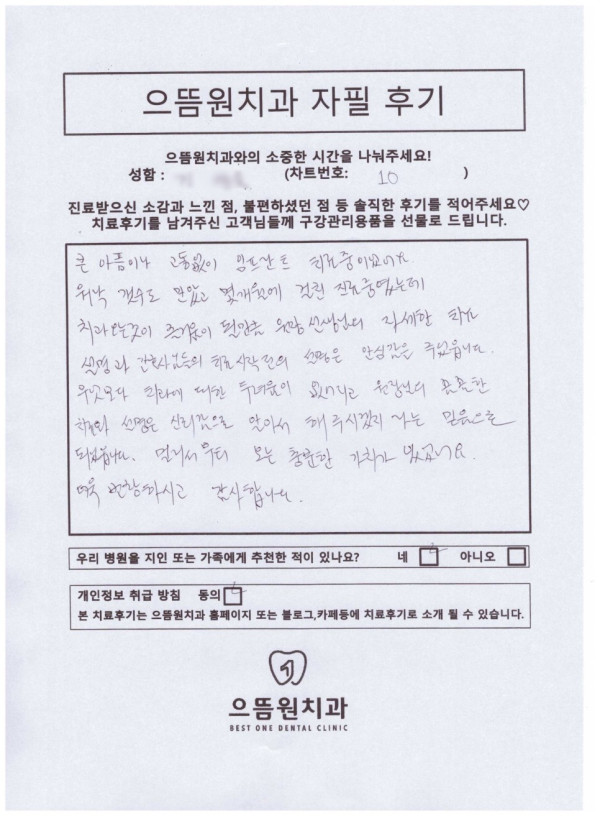 으뜸원치과 자필 후기
으뜸원치과와의 소중한 시간을 나눠주세요!
성함 : (차트번호: 10 )
진료받으신 소감과 느낀 점, 불편하셨던 점 등 솔직한 후기를 적어주세요♡
치료후기를 남겨주신 고객님들께 구강관리용품을 선물로 드립니다.
큰 아픔이나 고통없이 임프란트 치료중이였네요
워낙 갯수도 많았고 몇개월에 걸친 진료중였는데
치과오는것이 즐거움이 될만큼 원장선생님의 자세한 치료
설명과 간호사님들의 치료시작전의 설명은 안심감을 주었읍니다.
무엇보다 치과에 대한 두려움이 없어지고 원장님의 꼼꼼한
치료와 설명은 신뢰감으로 알아서 해주시겠지 라는 믿음으로
되었읍니다. 멀리서부터 오는 충분한 가치가 있었고요.
더욱 번창하시고 감사합니다.
우리 병원을 지인 또는 가족에게 추천한 적이 있나요? 네 아니오
개인정보 취급 방침 동의
본 치료후기는 으뜸원치과 홈페이지 또는 블로그,카페등에 치료후기로 소개 될 수 있습니다.
으뜸원치과
BEST ONE DENTAL CLINIC